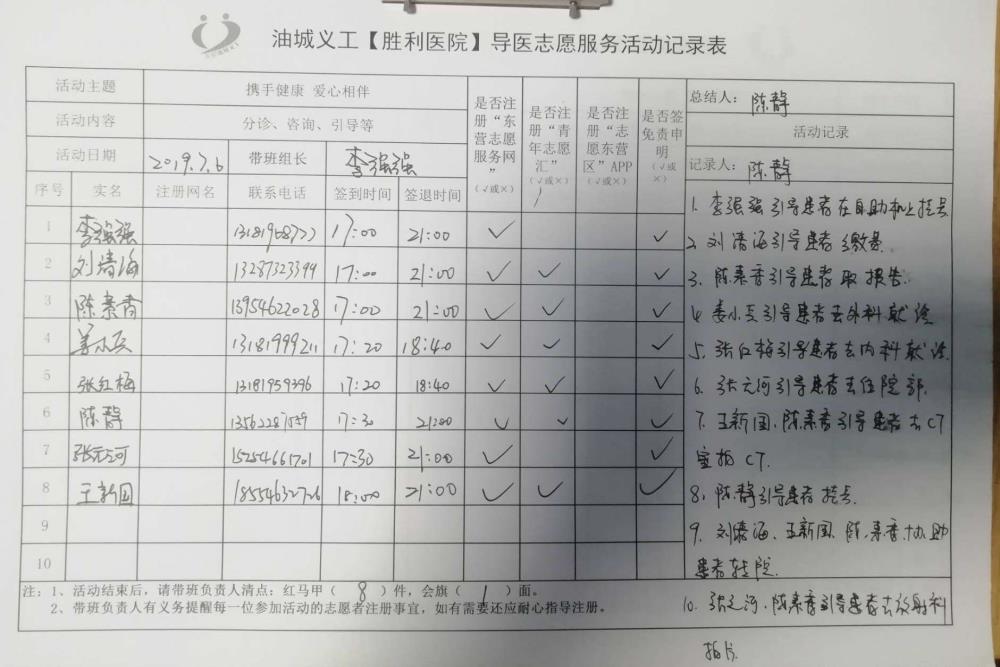 油城义工【胜利医院】导医志愿服务活动记录表
活动主题 携手健康 爱心相伴
活动内容 分诊、咨询、引导等
活动日期 2019.7.6 带班组长 李强强
序号 实名 注册网名 联系电话 签到时间 签退时间 是否注册“东营志愿服务网”(√或×) 是否注册“青年志愿汇”(√或×) 是否注册“志愿东营区”APP(√或×) 是否签免责申明(√或×)
1 李强强 17:00 21:00 √ √
2 刘清海 13287323399 17:00 21:00 √ √ √
3 陈素香 13954622028 17:00 21:00 √ √ √
4 姜小兵 13181999211 17:20 18:40 √ √ √
5 张红梅 13181959396 17:20 18:40 √ √ √
6 陈静 17:30 21:00 √ √ √
7 张元河 15254661701 17:30 21:00 √ √
8 王新国 18554632726 18:00 21:00 √ √ √
9
10
注:1、活动结束后,请带班负责人清点:红马甲( 8 )件,会旗( 1 )面。
2、带班负责人有义务提醒每一位参加活动的志愿者注册事宜,如有需要还应耐心指导注册。
总结人: 陈静
活动记录
记录人: 陈静
1. 李强强引导患者在自助机上挂号
2. 刘清海引导患者缴费.
3. 陈素香引导患者取报告.
4. 姜小兵引导患者去外科就诊
5. 张红梅引导患者去内科就诊
6. 张元河引导患者去住院部.
7. 王新国.陈素香引导患者去CT
室拍CT.
8. 陈静引导患者挂号.
9. 刘清海、王新国.陈素香协助
患者转院.
10. 张元河.陈素香引导患者去放射科
拍片.